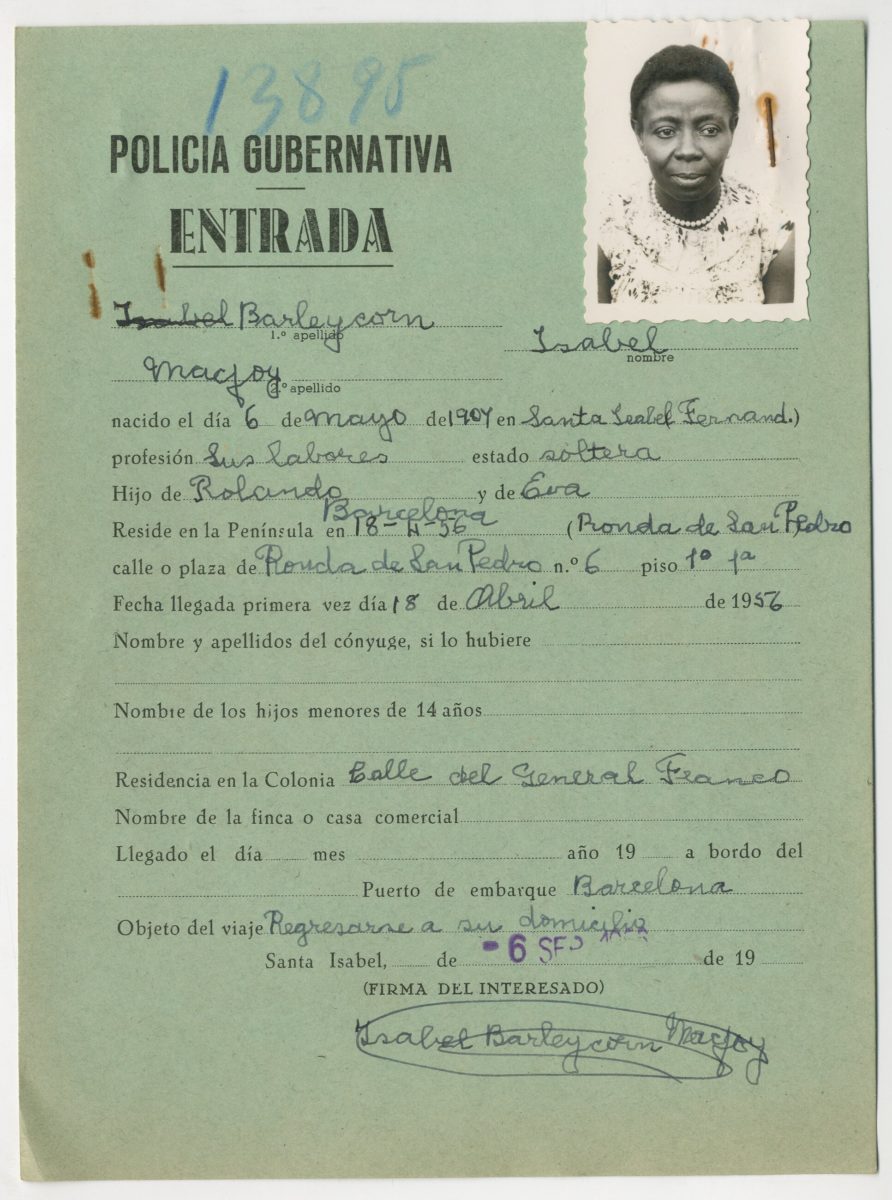 13895
POLICIA GUBERNATIVA
ENTRADA
Isabel Barleycorn
1.º apellido
Isabel
nombre
Macjoy
2.º apellido
nacido el día 6 de Mayo de 1907 en Santa Isabel Fernand.)
profesión Sus labores estado soltera
Hijo de Rolando y de Eva
Barcelona
Reside en la Península en 18-4-56 (Ronda de San Pedro
calle o plaza de Ronda de San Pedro n.º 6 piso 1º 1ª
Fecha llegada primera vez día 18 de Abril de 1956
Nombre y apellidos del cónyuge, si lo hubiere
Nombre de los hijos menores de 14 años
Residencia en la Colonia Calle del General Franco
Nombre de la finca o casa comercial
Llegado el día mes año 19 a bordo del
Puerto de embarque Barcelona
Objeto del viaje Regresarse a su domicilio
Santa Isabel, de -6 SEP de 19
(FIRMA DEL INTERESADO)
Isabel Barleycorn Macjoy